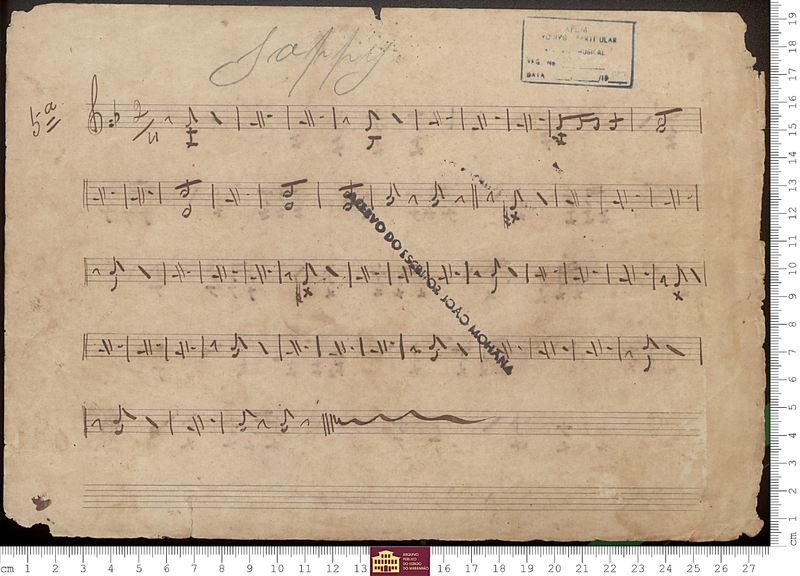 Sappy
APEM
ACERVO PARTICULAR
MUSICAL
REG. No
DATA / /19
5ª
2/4
ACERVO DO ESCRITOR JOÃO MOHANA
cm 1 2 3 4 5 6 7 8 9 10 11 12 13 16 17 18 19 20 21 22 23 24 25 26 27
cm 1 2 3 4 5 6 7 8 9 10 11 12 13 14 15 16 17 18 19
ARQUIVO
PÚBLICO
DO ESTADO
DO MARANHÃO